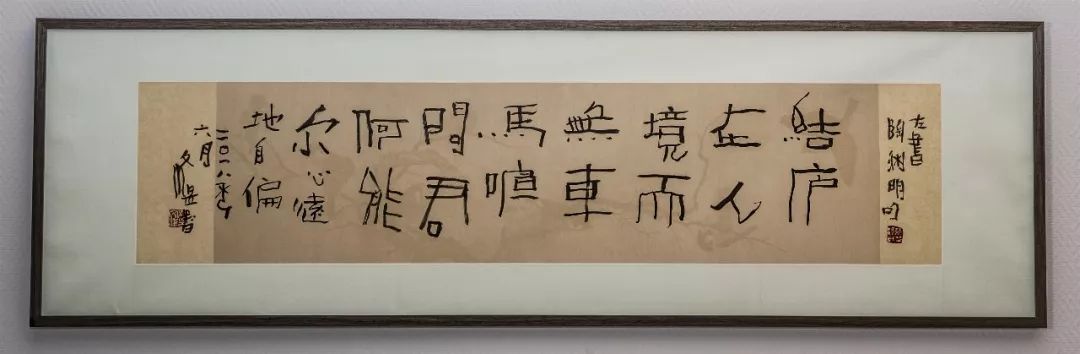 左書
陶渊明句
結庐
在人
境而
無車
馬喧
問君
何能
尔心遠
地自偏
二〇一八年
六月
書